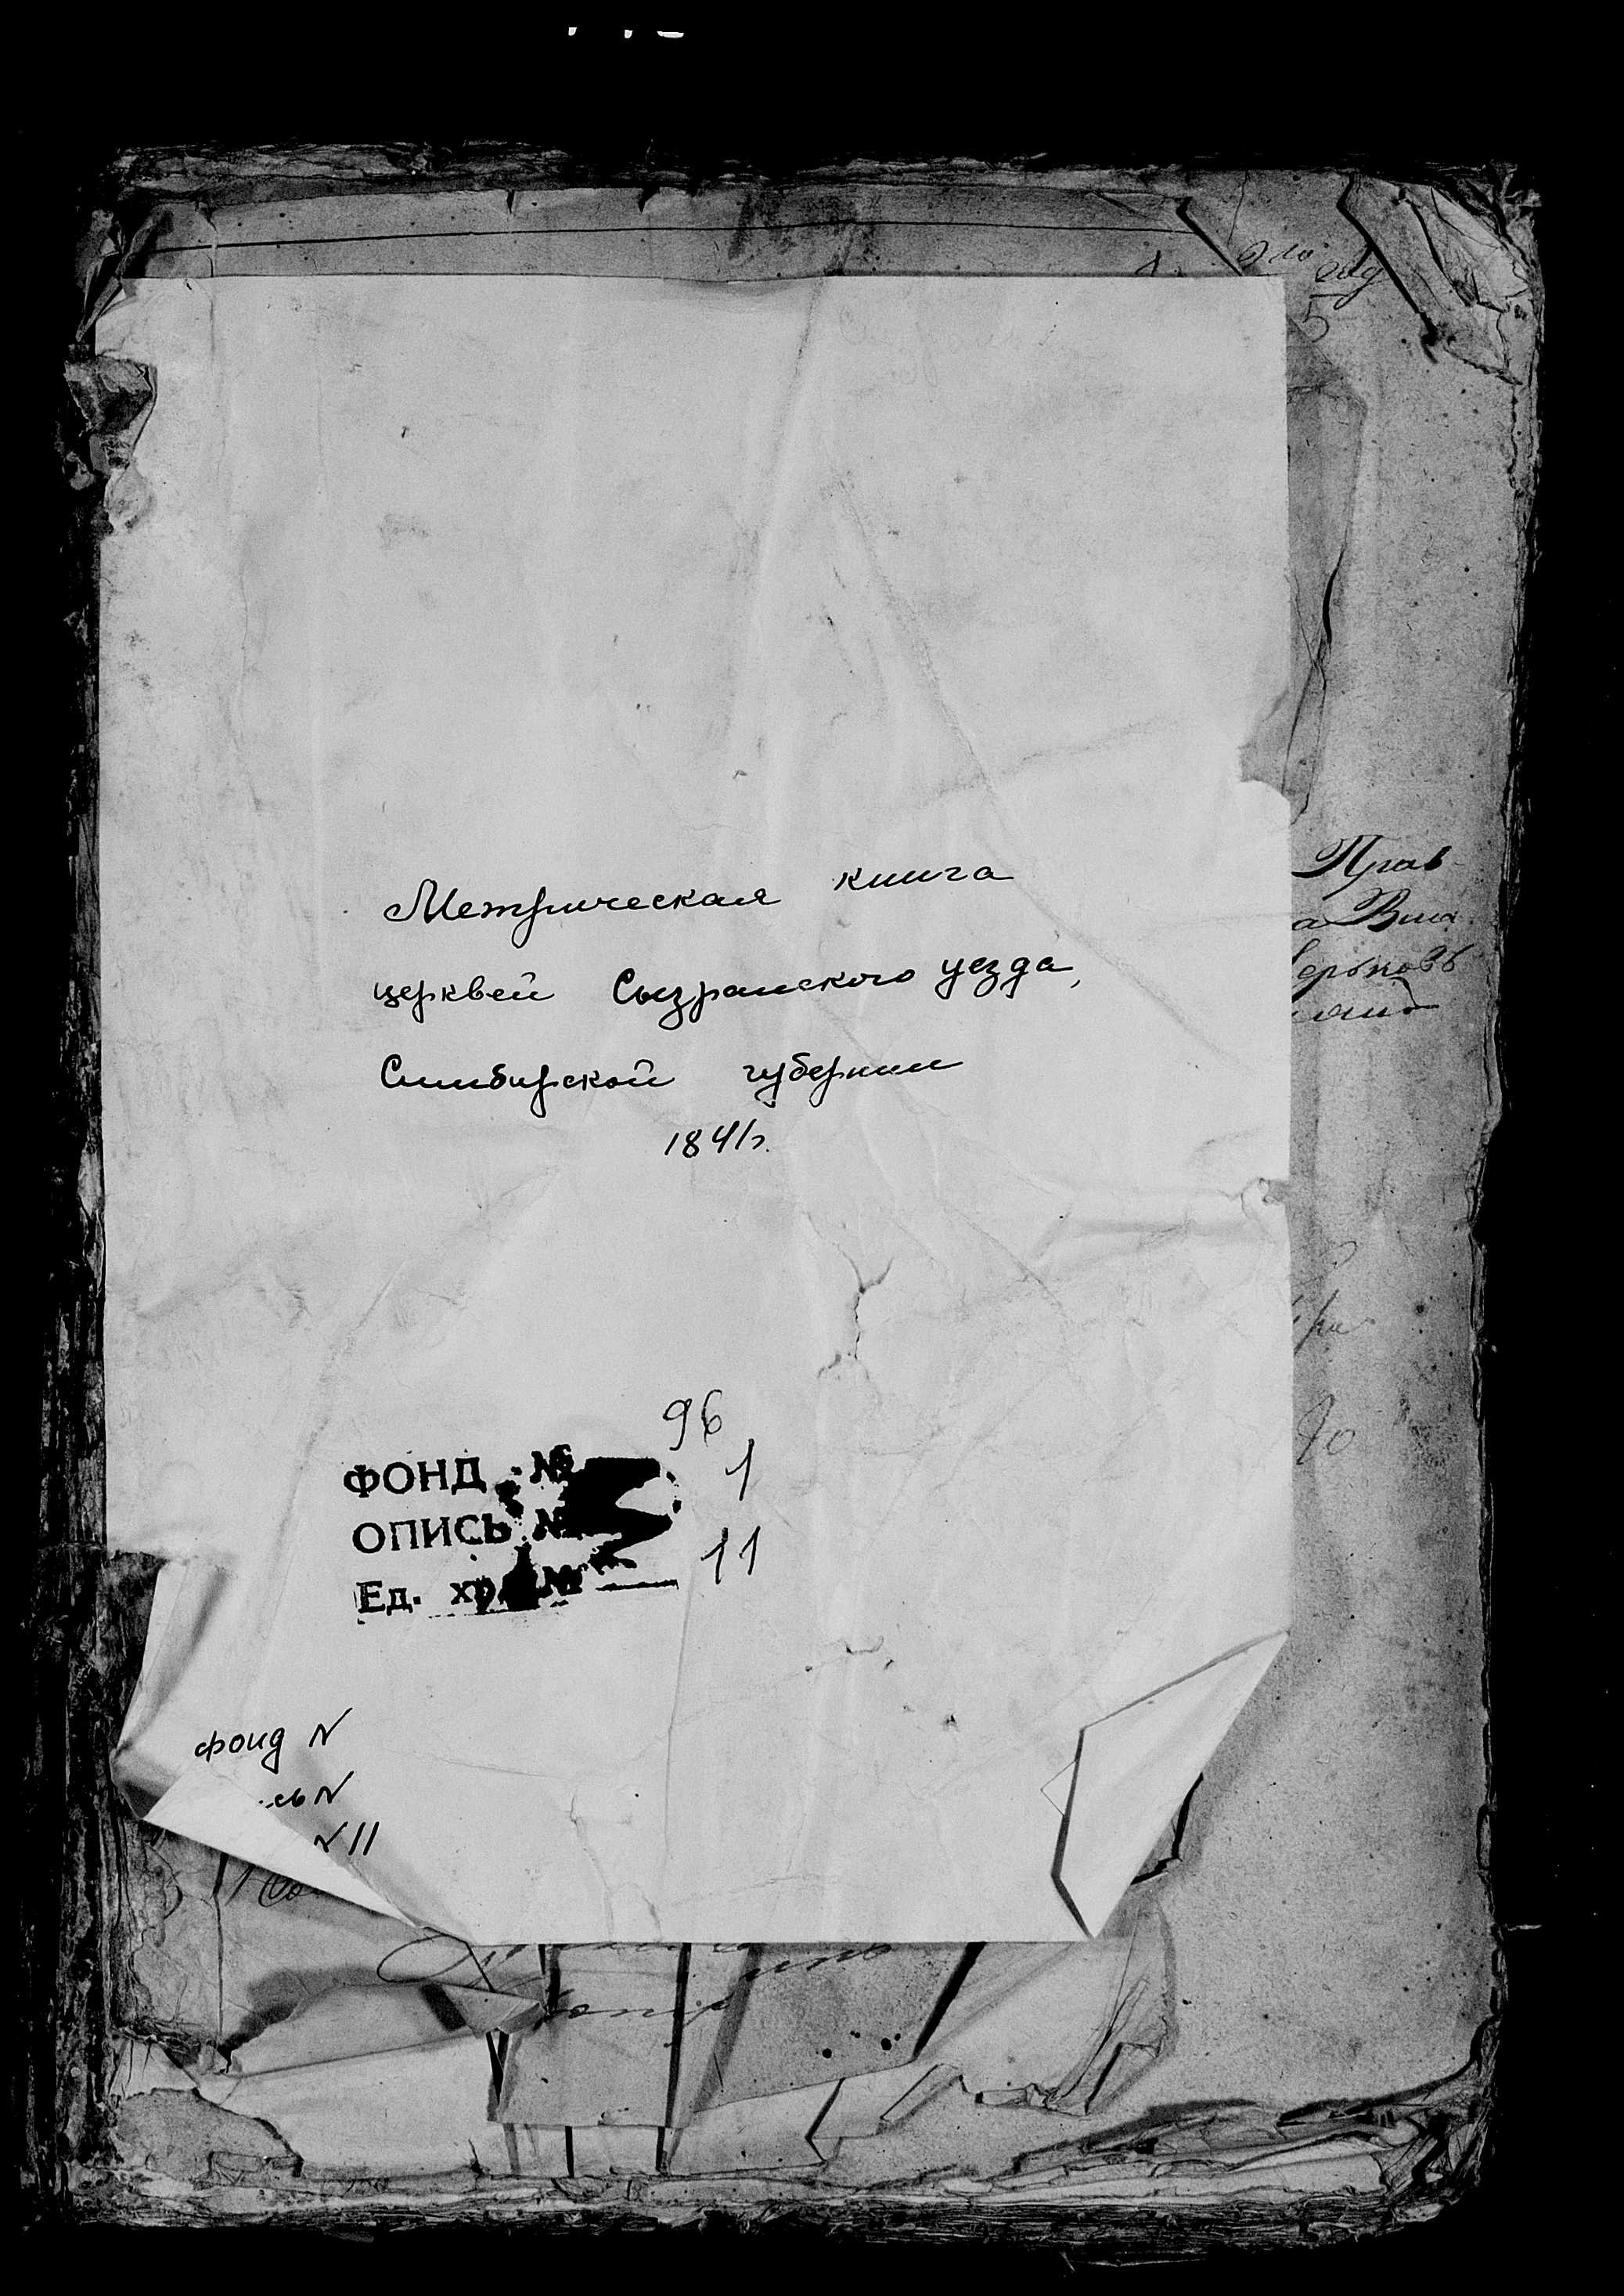 Метрическая книга
церквей Сызранского уезда,
Симбирской губернии
1841г.
96
ФОНД № 1
ОПИСЬ № 11
Ед. хр. №
фонд N
сь N
N 11
5
Прав